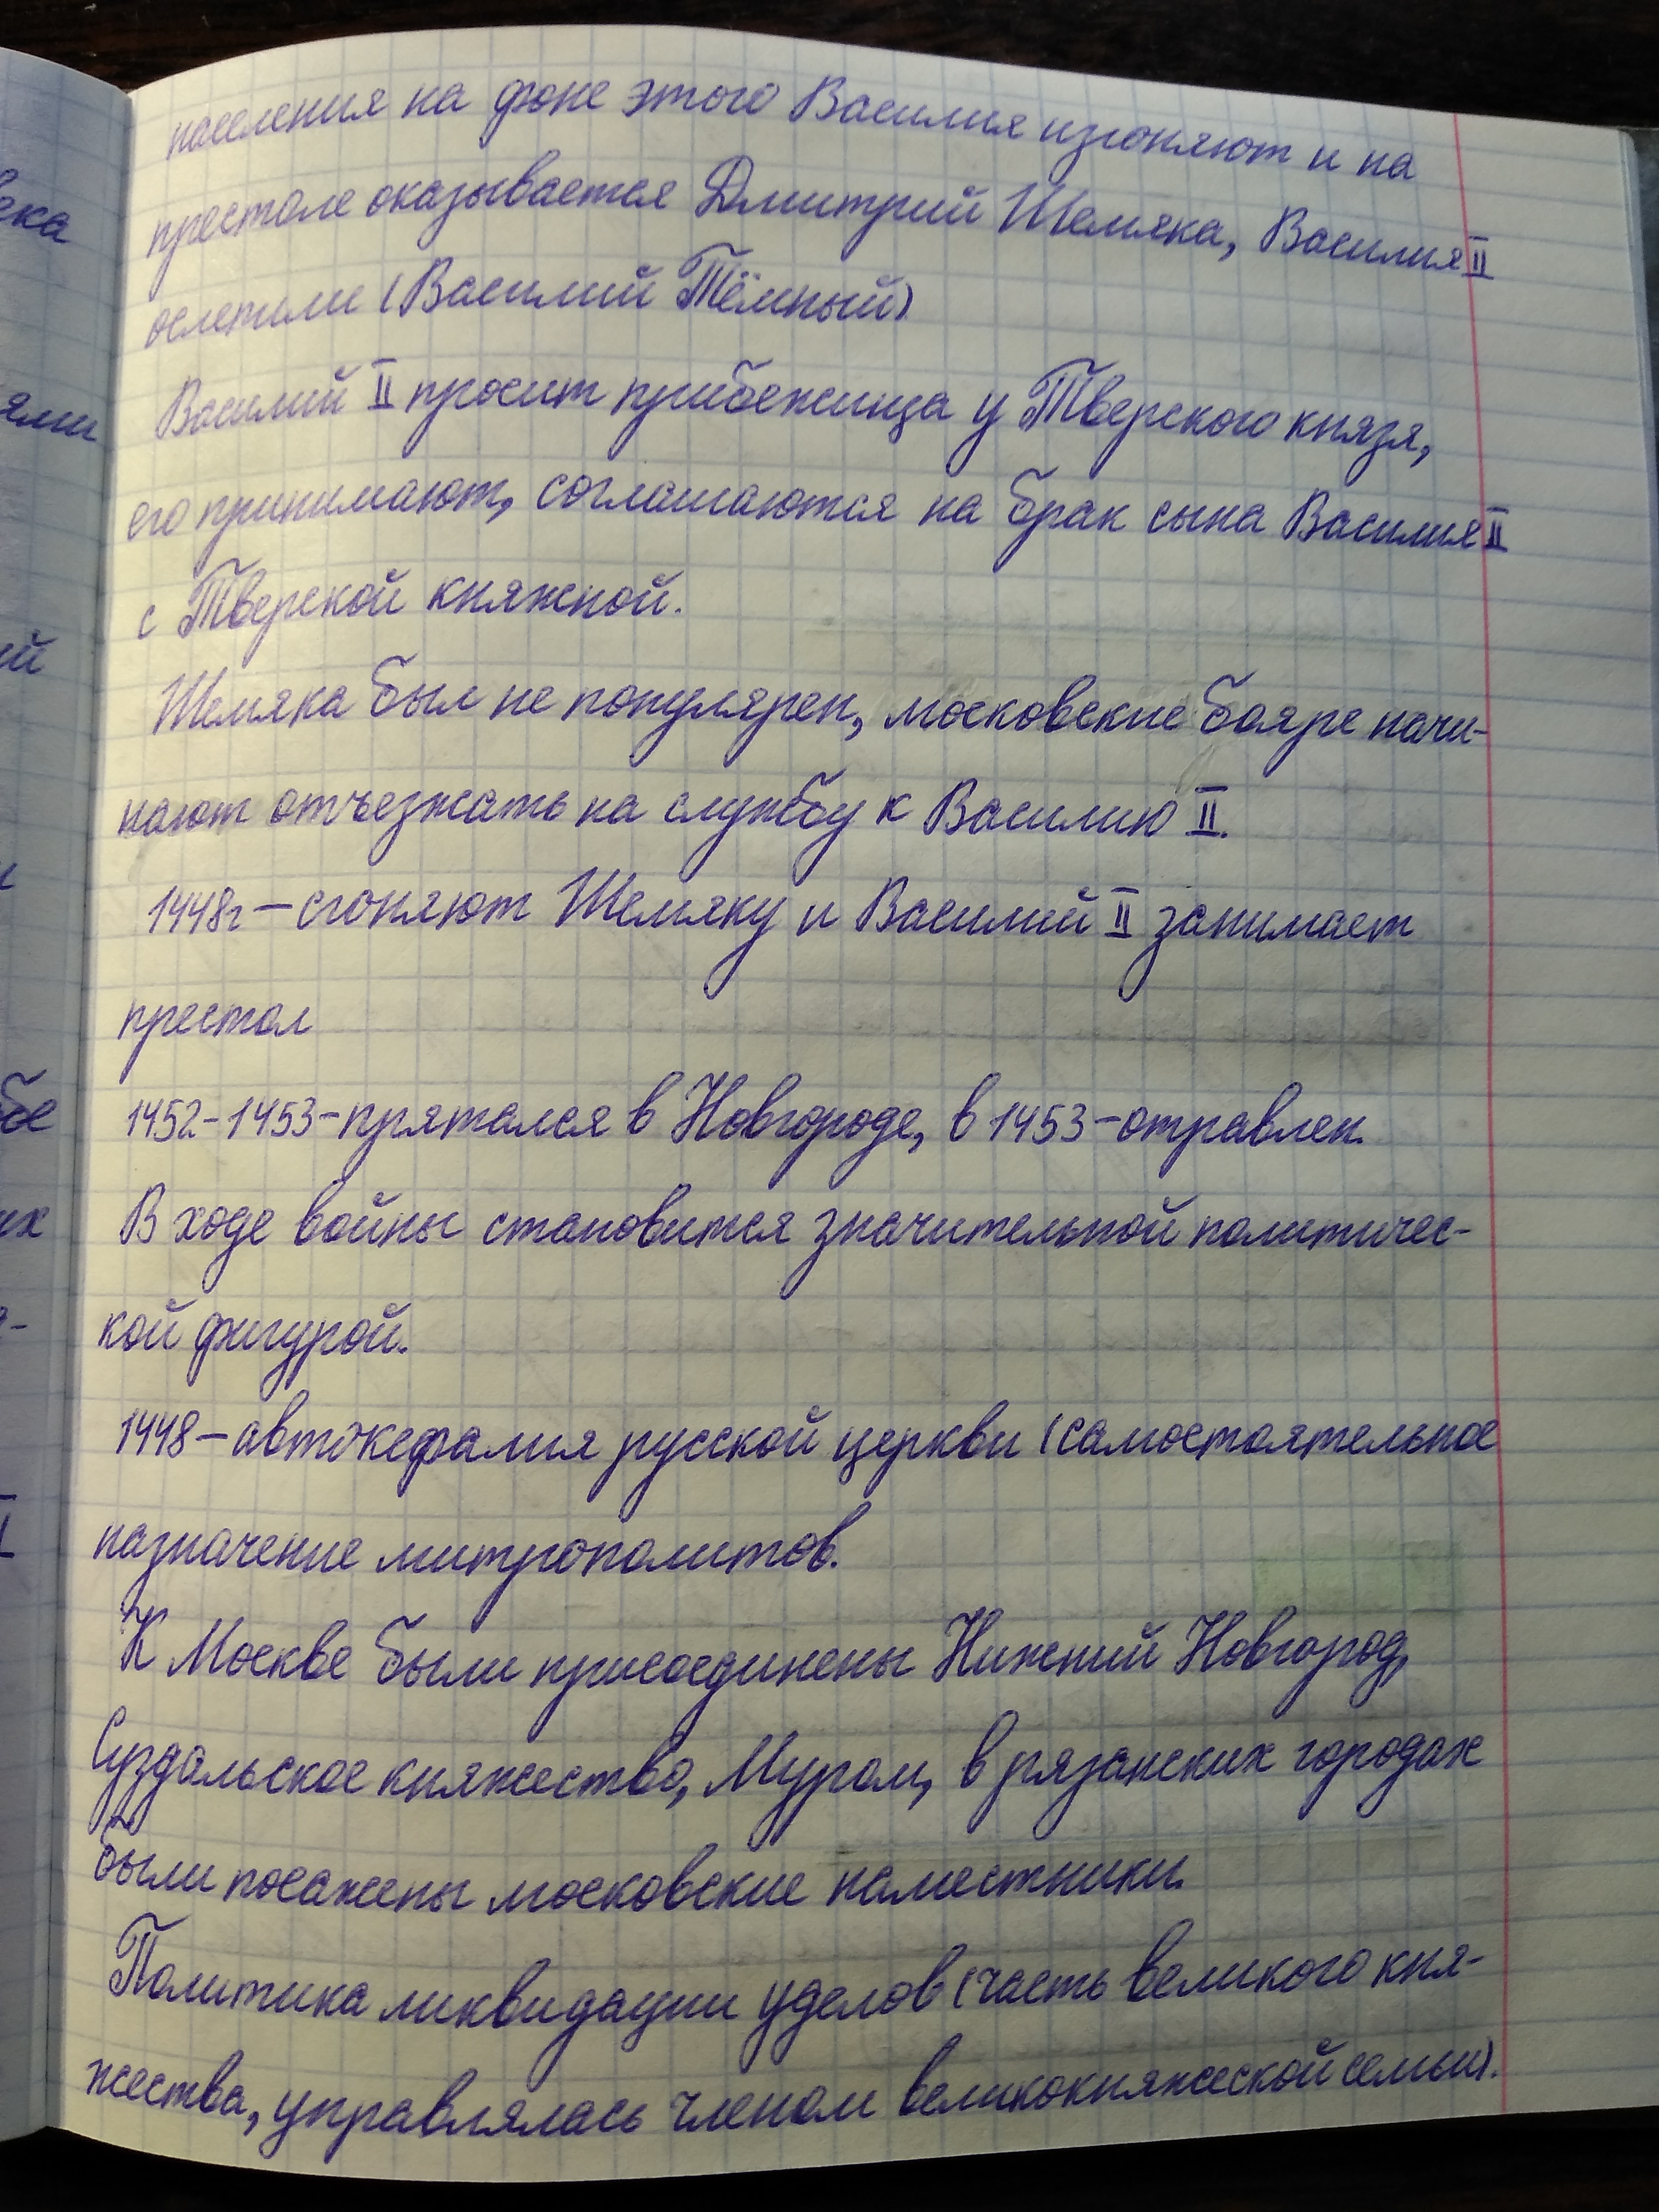 населения на фоне этого Василия изгоняют и на
престоле оказывается Дмитрий Шемяка, Василия II
ослепили (Василий Тёмный)
Василий II просит прибежища у Тверского князя,
его принимают, соглашаются на брак сына Василия II
с Тверской княжной.
Шемяка был не популярен, московские бояре начи-
нают отъезжать на службу к Василию II.
1448г – сгоняют Шемяку и Василий II занимает
престол
1452-1453-прятался в Новгороде, в 1453-отравлен.
В ходе войны становится значительной политичес-
кой фигурой.
1448 – автокефалия русской церкви (самостоятельное
назначение митрополитов.
К Москве были присоединены Нижний Новгород,
Суздальское княжество, Муром, в рязанских городах
были посажены московские наместники.
Политика ликвидации уделов (часть великого кня-
жества, управлялась членом великокняжеской семьи).